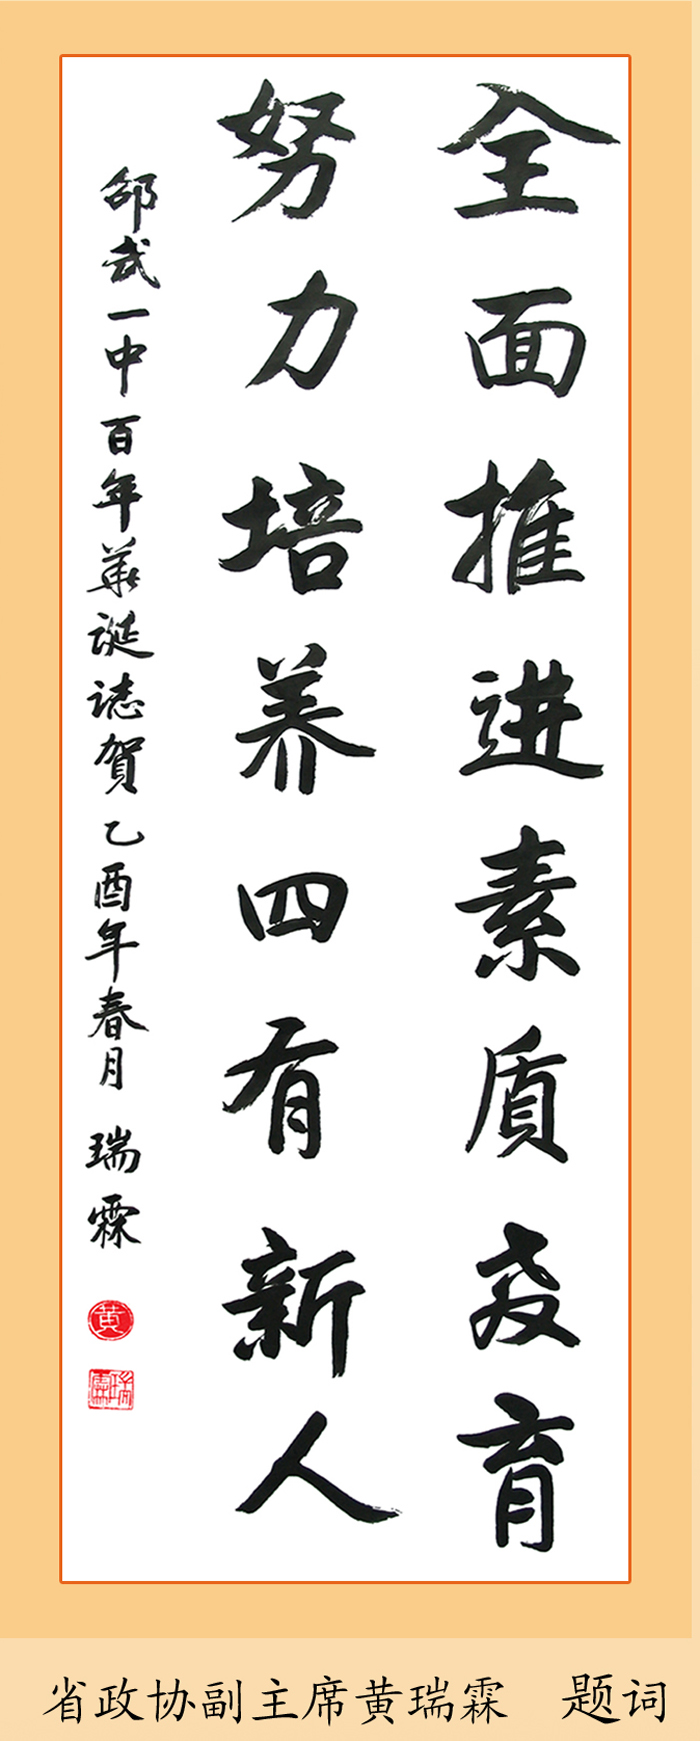 全面推进素质教育
努力培养四有新人
邵武一中百年华诞誌賀乙酉年春月 瑞霖
黄
瑞霖
省政协副主席黄瑞霖 题词